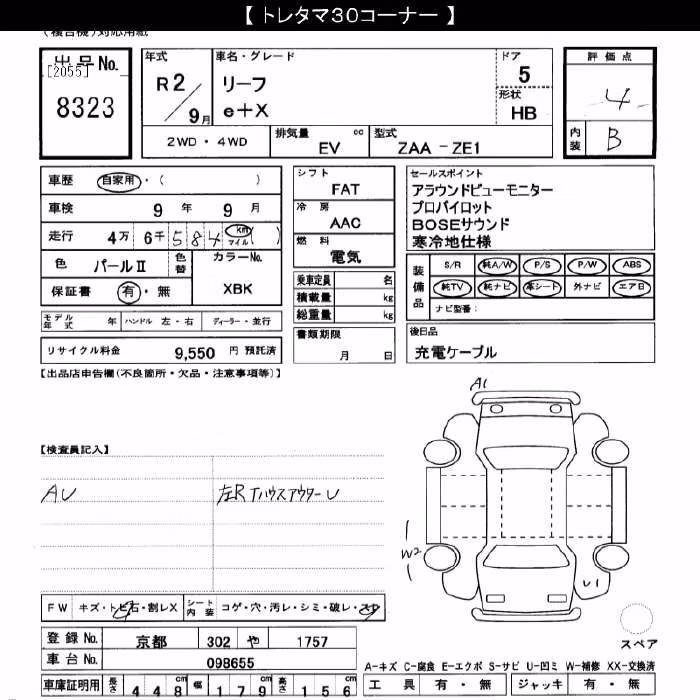 【 トレタマ30コーナー 】
(複合機)対応用紙
出品No.
[2055]
8323
年式
R2/9月
車名・グレード
リーフ
e+X
ドア
5
形状
HB
評価点
4
内装 B
2WD・4WD
排気量 cc
EV
型式
ZAA - ZE1
車歴 自家用・( )
車検 9 年 9 月
走行 4万 6千 5 8 4 km マイル ( )
色 パールII 色替
カラーNo.
XBK
保証書 有・無
シフト
FAT
冷房
AAC
燃料
電気
乗車定員 名
積載量 kg
総重量 kg
セールスポイント
アラウンドビューモニター
プロパイロット
BOSEサウンド
寒冷地仕様
装備品
S/R 純A/W P/S P/W ABS
純TV 純ナビ 革シート 外ナビ エアB
ナビ型番:
モデル年式 年 ハンドル 左・右 ディーラー・並行
書類期限
月 日
後日品
充電ケーブル
リサイクル料金 9,550 円 預託済
【出品店申告欄(不良箇所・欠品・注意事項等)】
A1
【検査員記入】
AU
左Rタハウスアウター U
W2
U1
FW キズ・トビ石・割レX シート内装 コゲ・穴・汚レ・シミ・破レ・スレ
登録No. 京都 302 や 1757
車台No. 098655
スペア
A-キズ C-腐食 E-エクボ S-サビ U-凹ミ W-補修 XX-交換済
車庫証明用 長さ 448 cm 幅 179 cm 高さ 156 cm
工具 有・無 ジャッキ 有・無